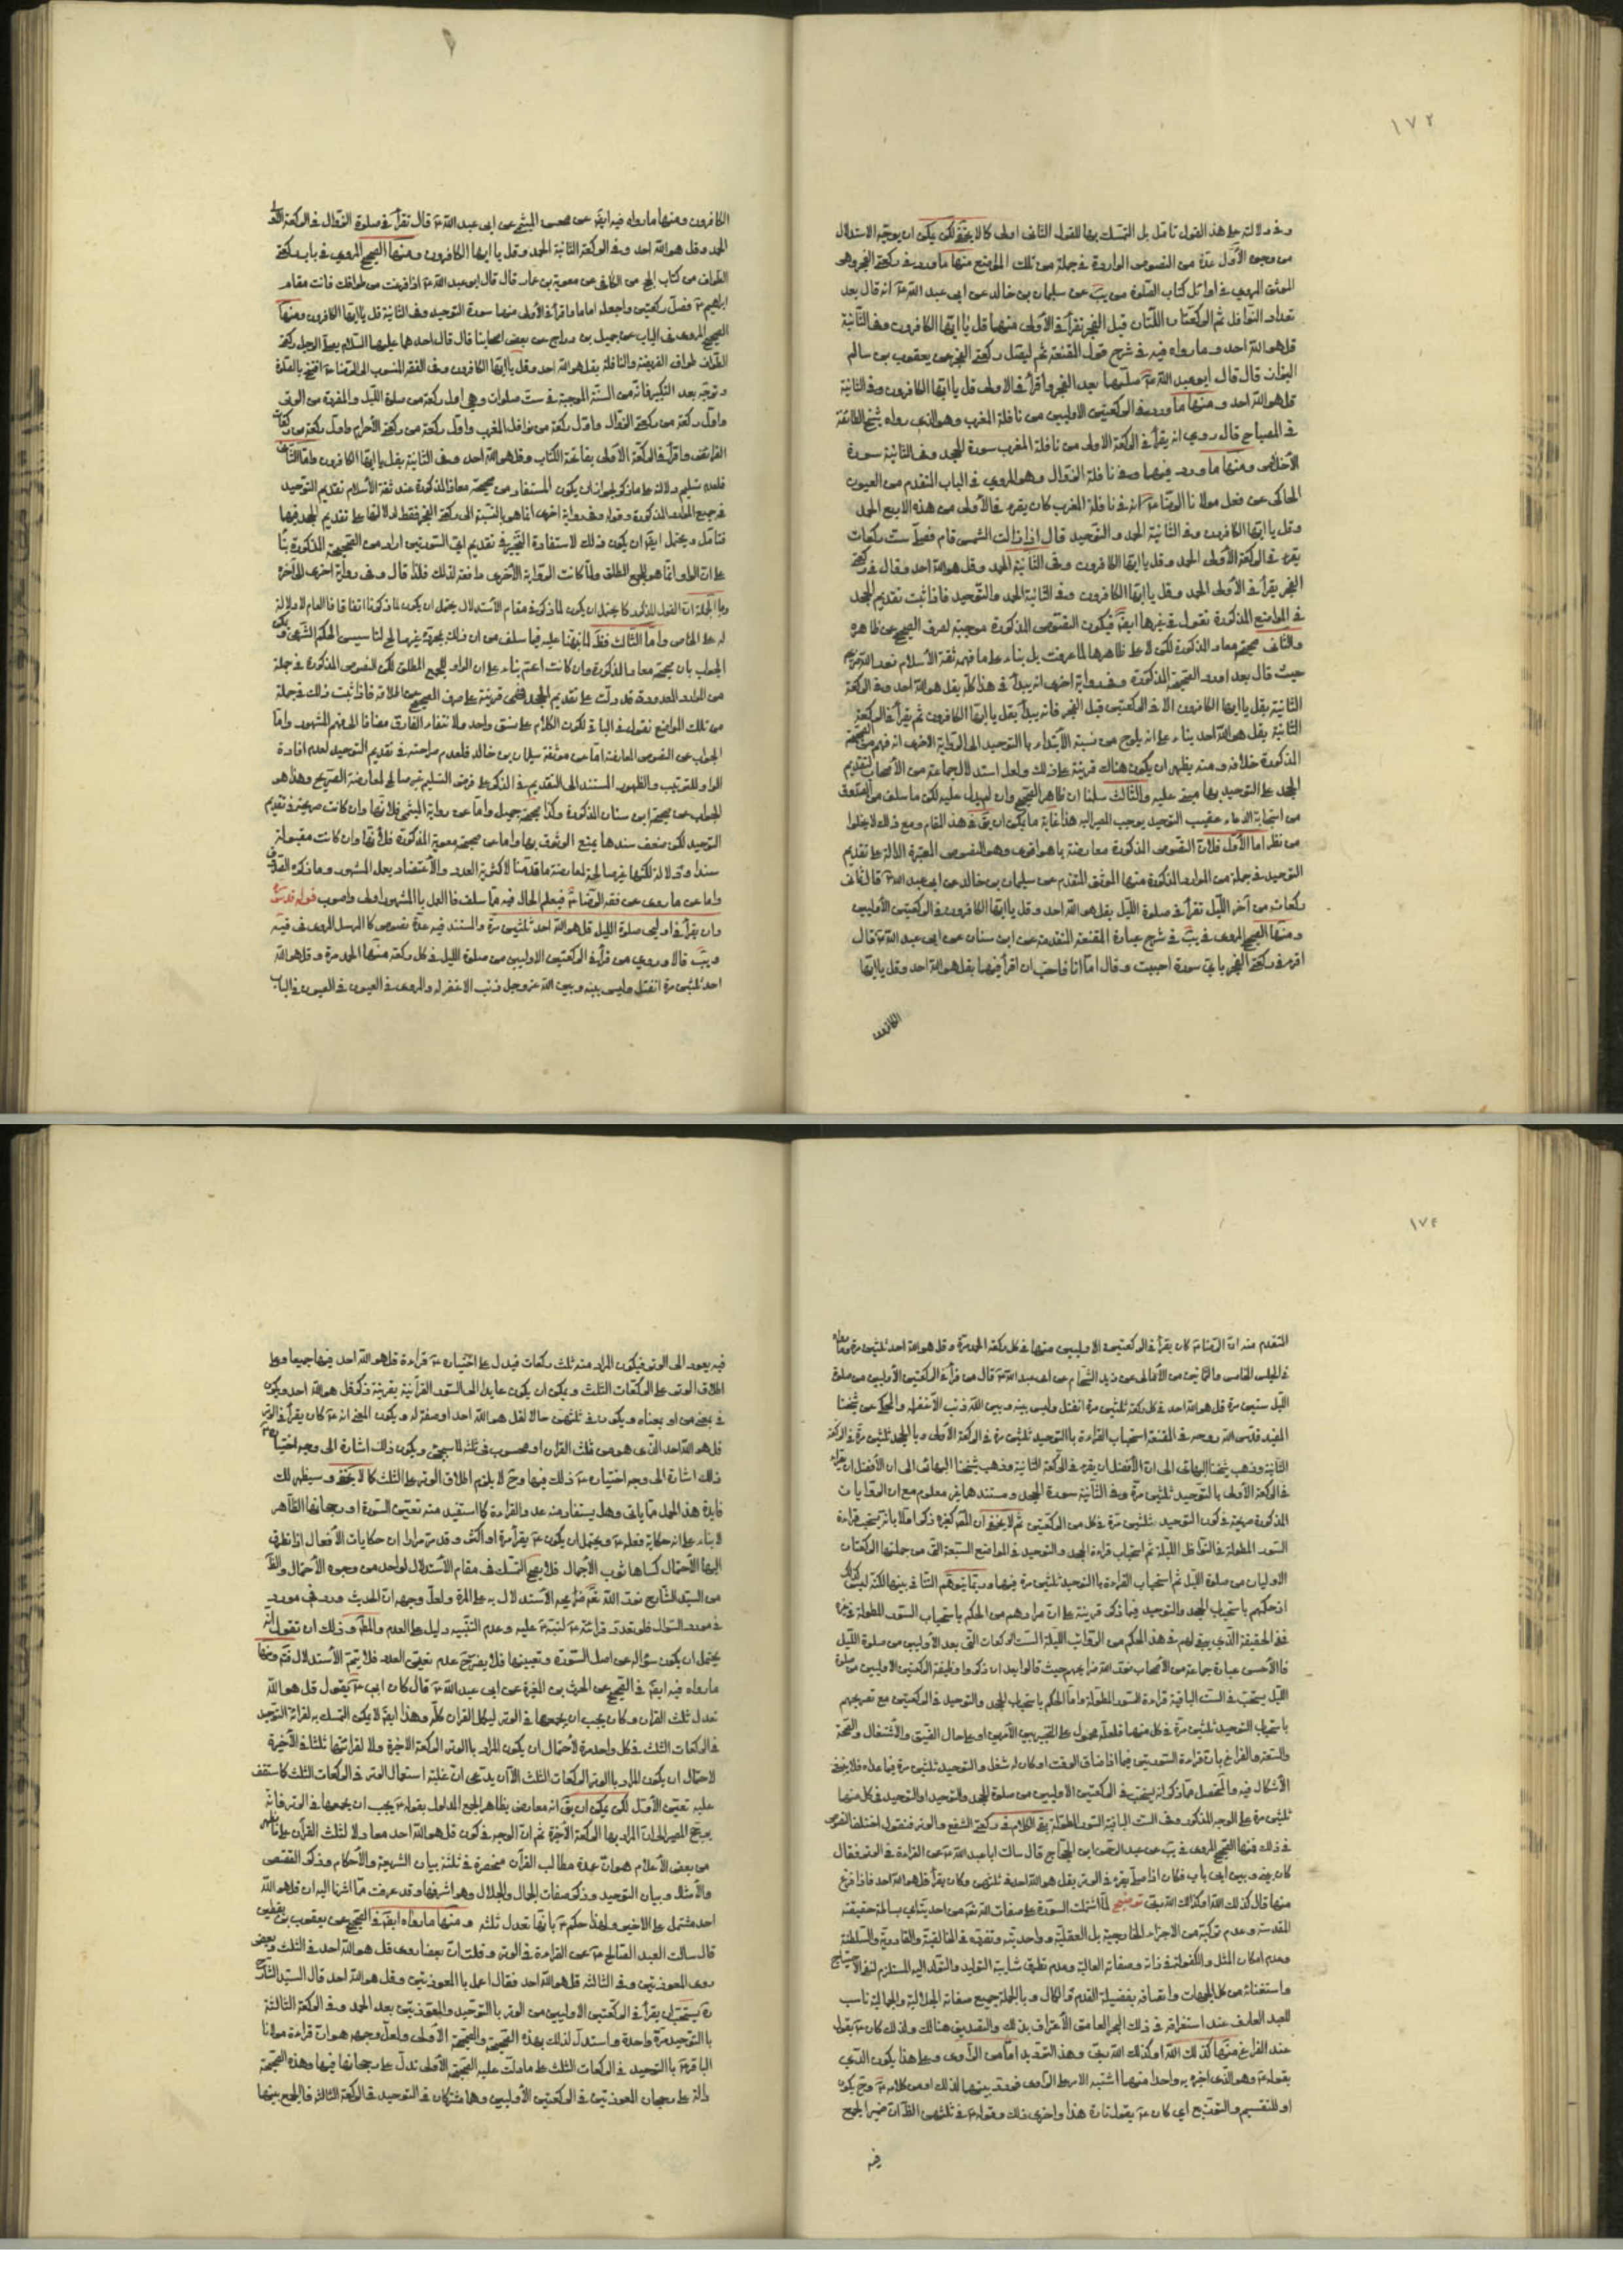 ١٧٢
وفي دلالته على هذا القول تامل بل التمسك بها للقول الثاني اولى كما لا يخفى لكن يمكن ان يوجه الاستدلال
من وجوه الأول عدة من النصوص الواردة في جملة من تلك المواضع منها ما ورد في ركعتي الفجر وهو
الموثق المروي في اوائل كتاب الصلوة من يب عن سليمان بن خالد عن ابي عبد الله ع انه قال بعد
تعداد النوافل ثم الركعتان اللتان قبل الفجر تقرأ في الأولى منهما قل يا ايها الكافرون وفي الثانية
قل هو الله احد وما رواه فيه في شرح قول المقنعة ثم ليصل ركعتي الفجر عن يعقوب بن سالم
البزاز قال قال ابو عبد الله ع صلهما بعد الفجر واقرأ في الاولى قل يا ايها الكافرون وفي الثانية
قل هو الله احد ومنها ما ورد في الركعتين الاوليين من نافلة المغرب وهو الذي رواه شيخ الطائفة
في المصباح قال روي انه يقرأ في الركعة الاولى من نافلة المغرب سورة الجحد وفي الثانية سورة
الأخلاص ومنها ما ورد فيهما وفي نافلة الزوال وهو المروي في الباب المتقدم من العيون
الحاكي عن فعل مولانا الرضا ع انه في نافلة المغرب كان يقرء في الأولى من هذه الاربع الحمد
وقل يا ايها الكافرون وفي الثانية الحمد والتوحيد قال اذا زالت الشمس قام فصلى ست ركعات
يقرء في الركعة الأولى الحمد وقل يا ايها الكافرون وفي الثانية الحمد وقل هو الله احد وقال في ركعتي
الفجر يقرأ في الأولى الحمد وقل يا ايها الكافرون وفي الثانية الحمد والتوحيد فاذا ثبت تقديم الجحد
في المواضع المذكورة نقول في غيرها ايضا فيكون النصوص المذكورة موجبة لصرف الصحيح عن ظاهره
والثاني صحيحة معاذ المذكورة لكن لا على ظاهرها لما عرفت بل بناء على ما فهمه ثقة الأسلام نور الله مرقده
حيث قال بعد ايراد الصحيحة المذكورة وفي رواية اخرى انه يبدأ في هذا كله بقل هو الله احد وفي الركعة
الثانية بقل يا ايها الكافرون الا في الركعتين قبل الفجر فانه يبدأ بقل يا ايها الكافرون ثم يقرأ في الركعة
الثانية بقل هو الله احد بناء على انه يلوح من نسبة الأبتداء بالتوحيد الى الرواية الاخرى انه فهم من الصحيحة
المذكورة خلافه ومنه يظهر ان يكون هناك قرينة على ذلك ولعل استدلال جماعة من الأصحاب لتقديم
الجحد على التوحيد بها مبني عليه والثالث سلمنا ان ظاهر الصحيح وان لم يدل عليه لكن ما سلف من
من استجابة الدعاء عقيب التوحيد يوجب المصير اليه هذا غاية ما يمكن ان يق في هذا المقام ومع ذلك لا يخلوا
من نظر اما الأول فلان النصوص المذكورة معارضة بما هو اقوى وهو النصوص المعتبرة الدالة على تقديم
التوحيد في جملة من الموارد المذكورة منها الموثق المتقدم عن سليمان بن خالد عن ابي عبد الله ع قال ثمان
ركعات من آخر الليل تقرأ في صلوة الليل بقل هو الله احد وقل يا ايها الكافرون في الركعتين الأوليين
ومنها الصحيح المروي في يب في شرح عبارة المقنعة المتقدمة عن ابن سنان عن ابي عبد الله ع قال
اقرء في ركعتي الفجر باي سورة احببت وقال اما انا فاحب ان اقرأ فيهما بقل هو الله احد وقل يا ايها
الكافرون
الكافرون ومنها ما رواه فيه ايضا عن محسن الميثمي عن ابي عبد الله ع قال تقرأ في صلوة الزوال في الركعة الاولى
الحمد وقل هو الله احد وفي الركعة الثانية الحمد وقل يا ايها الكافرون ومنها الصحيح المروي في باب ركعتي
الطواف من كتاب الحج من الكافي عن معوية بن عمار قال قال ابو عبد الله ع اذا فرغت من طوافك فائت مقام
ابراهيم ع فصل ركعتين واجعله اماما واقرأ في الأولى منهما سورة التوحيد وفي الثانية قل يا ايها الكافرون ومنها
الصحيح المروي في الباب عن جميل بن دراج عن بعض اصحابنا قال قال احدهما عليهما السلام يصلي الرجل ركعتي
الطواف طواف الفريضة والنافلة بقل هو الله احد وقل يا ايها الكافرون وفي الفقه المنسوب الى الرضا ع افتتح بالصلوة
وتوجه بعد التكبير فانه من السنة الموجبة في ست صلوات وهي اول ركعة من صلوة الليل والمفردة من الوتر
واول ركعة من ركعتي الزوال واول ركعة من نوافل المغرب واول ركعة من ركعتي الأحرام واول ركعة من ركعات
الفرائض واقرأ في الركعة الأولى بفاتحة الكتاب وقل هو الله احد وفي الثانية بقل يا ايها الكافرون واما الثاني
فلعدم تسليم دلالته على ما ذكر لجواز ان يكون المستفاد من صحيحة معاذ المذكورة عند ثقة الأسلام تقديم التوحيد
في جميع الموارد المذكورة وقوله وفي رواية اخرى انما هو بالنسبة الى ركعتي الفجر فقط لدلالتها على تقديم الجحد فيها
فتامل ويحتمل ايضا ان يكون ذلك لاستفادة التخيير في تقديم اي السورتين اراد من الصحيحة المذكورة بناء
على ان الواو انما هو للجمع المطلق ولما كانت الرواية الأخرى دافعة لذلك فلذا قال وفي رواية اخرى الى آخره
وبالجملة ان القول المذكور كما يحتمل ان يكون لما ذكر في مقام الأستدلال يحتمل ان يكون لما ذكرنا اتفاقا فالعام لا دلالة
له على الخاص واما الثالث فقد لما نبهنا عليه فيما سلف من ان ذلك بمجرده غير صالح لتاسيس الحكم الشرعي ويمكن
الجواب بان صحيحة معاذ المذكورة وان كانت اعم بناء على ان الواو للجمع المطلق لكن النصوص المذكورة في جملة
من الموارد المعدودة قد دلت على تقديم الجحد فهي قرينة على صرف الصحيح عن اطلاقه فاذا ثبت ذلك في جملة
من تلك المواضع نقوله في الباقي لكون الكلام على نسق واحد ولانتفاء الفارق مضافا الى فهم المشهور واما
الجواب عن النصوص المعارضة اما عن موثقة سليمان بن خالد فلعدم صراحته في تقديم التوحيد لعدم افادة
الواو للترتيب والظهور المستند الى التقديم في الذكر على فرض التسليم غير صالح لمعارضة الصريح وهذا هو
الجواب عن صحيحة ابن سنان المذكورة وكذا صحيحة جميل واما عن رواية الميثمي فلانها وان كانت صريحة في تقديم
التوحيد لكن ضعف سندها يمنع الوثوق بها واما عن صحيحة معوية المذكورة فلانها وان كانت مقبولة
سندا ودلالة لكنها غير صالحة لمعارضة ما قدمنا لاكثرية العدد والأعتضاد بعمل المشهور وما ذكره الصدوق
واما عن ما روي عن فقه الرضا ع فيعلم الحال فيه مما سلف فالعمل بالمشهور اولى واصوب قوله قدس سره
وان يقرأ في اوليي صلوة الليل قل هو الله احد ثلثين مرة والمستند فيه عدة نصوص كالمرسل المروي في فيه
ويب قالا وروي من قرأ في الركعتين الاوليين من صلوة الليل في كل ركعة منهما الحمد مرة وقل هو الله
احد ثلثين مرة انفتل وليس بينه وبين الله عز وجل ذنب الا غفر له والمروي في العيون في الباب
١٧٤
المتقدم منه ان الرضا ع كان يقرأ في الركعتين الاوليين منها في كل ركعة الحمد مرة وقل هو الله احد ثلثين مرة وما رواه
في المجلس الخامس والثمانين من الأمالي عن زيد الشحام عن ابي عبد الله ع قال من قرأ في الركعتين الأوليين من صلوة
الليل ستين مرة قل هو الله احد في كل ركعة ثلثين مرة انفتل وليس بينه وبين الله ذنب الا غفر له والمحكي عن شيخنا
المفيد قدس الله روحه في المقنعة استحباب القراءة بالتوحيد ثلثين مرة في الركعة الأولى وبالجحد ثلثين مرة في الركعة
الثانية وذهب شيخنا البهائي الى ان الأفضل ان يقرء في الركعة الثانية وذهب شيخنا البهائي الى ان الأفضل ان يقرأ
في الركعة الأولى بالتوحيد ثلثين مرة وفي الثانية سورة الجحد ومستندهما غير معلوم مع ان الروايات
المذكورة صريحة في كون التوحيد ثلثين مرة في كل من الركعتين ثم لا يخفى ان المص كغيره ذكر اولا بانه يستحب قراءة
السور المطولة في النوافل الليلة ثم استحباب قراءة الجحد والتوحيد في المواضع السبعة التي من جملتها الركعتان
الاوليان من صلوة الليل ثم استحباب القراءة بالتوحيد ثلثين مرة فيهما وربما يتوهم التنافي بينها لكنه ليس كذلك
اذ حكمهم باستحباب الجحد والتوحيد فيما ذكر قرينة على ان مرادهم من الحكم باستحباب السور المطولة في غيره
ففي الحقيقة الذي يبقى لهم في هذا الحكم من الرواتب الليلة الست الركعات التي بعد الأوليين من صلوة الليل
فالأحسن عبارة جماعة من الأصحاب نور الله مراقدهم حيث قالوا بعد ان ذكروا وظيفة الركعتين الاوليين من صلوة
الليل يستحب في الست الباقية قراءة السور المطولة واما الحكم باستحباب الجحد والتوحيد في الركعتين مع تصريحهم
باستحباب التوحيد ثلثين مرة في كل منهما فلعله محمول على التخيير بين الأمرين او على حال الضيق والأشتغال والصحة
والسفر والفراغ بان قراءة السورتين فيما اذا ضاق الوقت او كان له شغل والتوحيد ثلثين مرة فيما عداه فلا يخفى
الأشكال فيه والمحصل مما ذكر انه يستحب في الركعتين الاوليين من صلوة الجحد والتوحيد او التوحيد في كل منهما
ثلثين مرة على الوجه المذكور وفي الست الباقية السور المطولة بقي الكلام في ركعتي الشفع والوتر فنقول اختلف النصوص
في ذلك فمنها الصحيح المروي في يب عن عبد الرحمن ابن الحجاج قال سالت ابا عبد الله ع عن القراءة في الوتر فقال
كان بيني وبين ابي باب فكان اذا صلى يقرء في الوتر بقل هو الله احد في ثلثهن وكان يقرأ قل هو الله احد فاذا فرغ
منها قال كذلك الله او كذاك الله ربي توضيح لما اشتملت السورة على صفات الله تعم من احديته اي بساطة حقيقته
المقدسة وعدم تركبه من الاجزاء الخارجية بل العقلية وواحديته وتفرده في الخالقية والقادرية والسلطنة
وعدم امكان المثل والكفو له في ذاته وصفاته العالية وعدم تطرق شايبة التوليد والتولد اليه المستلزم لنفي الاحتياج
واستغنائه من كل الجهات واتصافه بفضيلة القدم والكمال وبالجملة جميع صفاته الجلالية والجمالية ناسب
للعبد العارف عند استغراقه في ذلك البحر العامق الأعتراف بذلك والتصديق هنالك ولذلك كان ع يقول
عند الفراغ منها كذلك الله او كذلك الله ربي وهذا الترديد اما من الراوي وعلى هذا يكون الذي
يقوله ع وهو الذي اخبره به واحدا منهما اشتبه الامر على الراوي فردد بينهما لذلك او من كلامه ع وح يكون
او للتقسيم والتوزيع اي كان ع يقول تارة هذا واخرى ذلك وقوله ع في ثلثهن الظ ان ضمير الجمع
فيه
فيه يعود الى الوتر فيكون المراد منه ثلث ركعات فيدل على اختياره ع قراءة قل هو الله احد فيها جميعا وعلى
اطلاق الوتر على الركعات الثلث ويمكن ان يكون عايدا الى السور القرآنية بقرينة ذكر قل هو الله احد ويكون
في بمعنى من او بمعناه ويكون في ثلثهن حالا لقل هو الله احد او صفة له ويكون المعنى انه ع كان يقرأ في الوتر
قل هو الله احد الذي هو من ثلث القران او محسوب في ثلثه لما سيجئ ويكون ذلك اشارة الى وجه اختياره
ذلك اشارة الى وجه اختياره ع ذلك فيها وح لا يلزم اطلاق الوتر على الثلث كما لا يخفى وسيظهر لك
فايدة هذا الحمل مما ياتي وهل يستفاد منه عدد القراءة كما استفيد منه تعيين السورة او رجحانها الظاهر
لا بناء على انه حكاية فعله ع ويحتمل ان يكون ع يقرأ مرة او اكثر وقد مر مرارا ان حكايات الأفعال اذا تطرق
اليها الأحتمال كساها ثوب الأجمال فلا يصح التمسك في مقام الأستدلال لواحد من وجوه الأحتمال والظ
من السيد الشارح نور الله تعم ضرايحه الأستدلال به على المرة ولعل وجهه ان الحديث ورد في مورد
في مورد السؤال فلو تعدد قرائته ع لنبه ع عليه وعدم التنبيه دليل على العدم والمط وذلك ان تقول انه
يحتمل ان يكون سؤاله عن اصل السورة وتعيينها فلا يضر ح عدم تعيين العدد فلا يتم الأستدلال فتم ومنها
ما رواه فيه ايضا في الصحيح عن الحرث بن المغيرة عن ابي عبد الله ع قال كان ابي ع يقول قل هو الله
تعدل ثلث القران وكان يحب ان يجمعها في الوتر ليكمل القران كله وهذا ايضا لا يمكن التمسك به لقرائة التوحيد
في الركعات الثلث في كل واحد مرة لأحتمال ان يكون المراد بالوتر الركعة الاخرة ولا لقرائتها ثلثا في الأخيرة
لاحتمال ان يكون المراد بالوتر الركعات الثلث الا ان يدعى ان غلبة استعمال الوتر في الركعات الثلث كما ستقف
عليه تعين الأول لكن يمكن ان يق انه معارض بظاهر الجمع المدلول بقوله ع يحب ان يجمعها في الوتر فانه
يرجح المصير الى ان المراد بها الركعة الأخيرة ثم ان الوجه في كون قل هو الله احد معادلا لثلث القرآن على ما يظهر
من بعض الأعلام هو ان عمدة مطالب القرآن منحصرة في ثلثة بيان الشريعة والأحكام وذكر القصص
والأمثال وبيان التوحيد وذكر صفات الجمال والجلال وهو اشرفها وقد عرفت مما اشرنا اليه ان قل هو الله
احد مشتمل على الاخير ولهذا حكم ع بانها تعدل ثلثه ومنها ما رواه ايضا في الصحيح عن يعقوب بن يقطين
قال سالت العبد الصالح ع عن القراءة في الوتر وقلت ان بعضا روى قل هو الله احد في الثلث وبعض
روى المعوذتين وفي الثالثة قل هو الله احد فقال اعمل بالمعوذتين وقل هو الله احد قال السيد الشارح
ره يستحب ان يقرأ في الركعتين الاوليين من الوتر بالتوحيد والمعوذتين بعد الحمد وفي الركعة الثالثة
بالتوحيد مرة واحدة واستدل لذلك بهذه الصحيحة والصحيحة الأولى ولعل وجهه هو ان قراءة مولانا
الباقر ع بالتوحيد في الركعات الثلث على ما دلت عليه الصحيحة الأولى تدل على رجحانها فيها وهذه الصحيحة
دالة على رجحان المعوذتين في الركعتين الأوليين وهما مشتركان في التوحيد في الركعة الثالثة فالجمع بينها